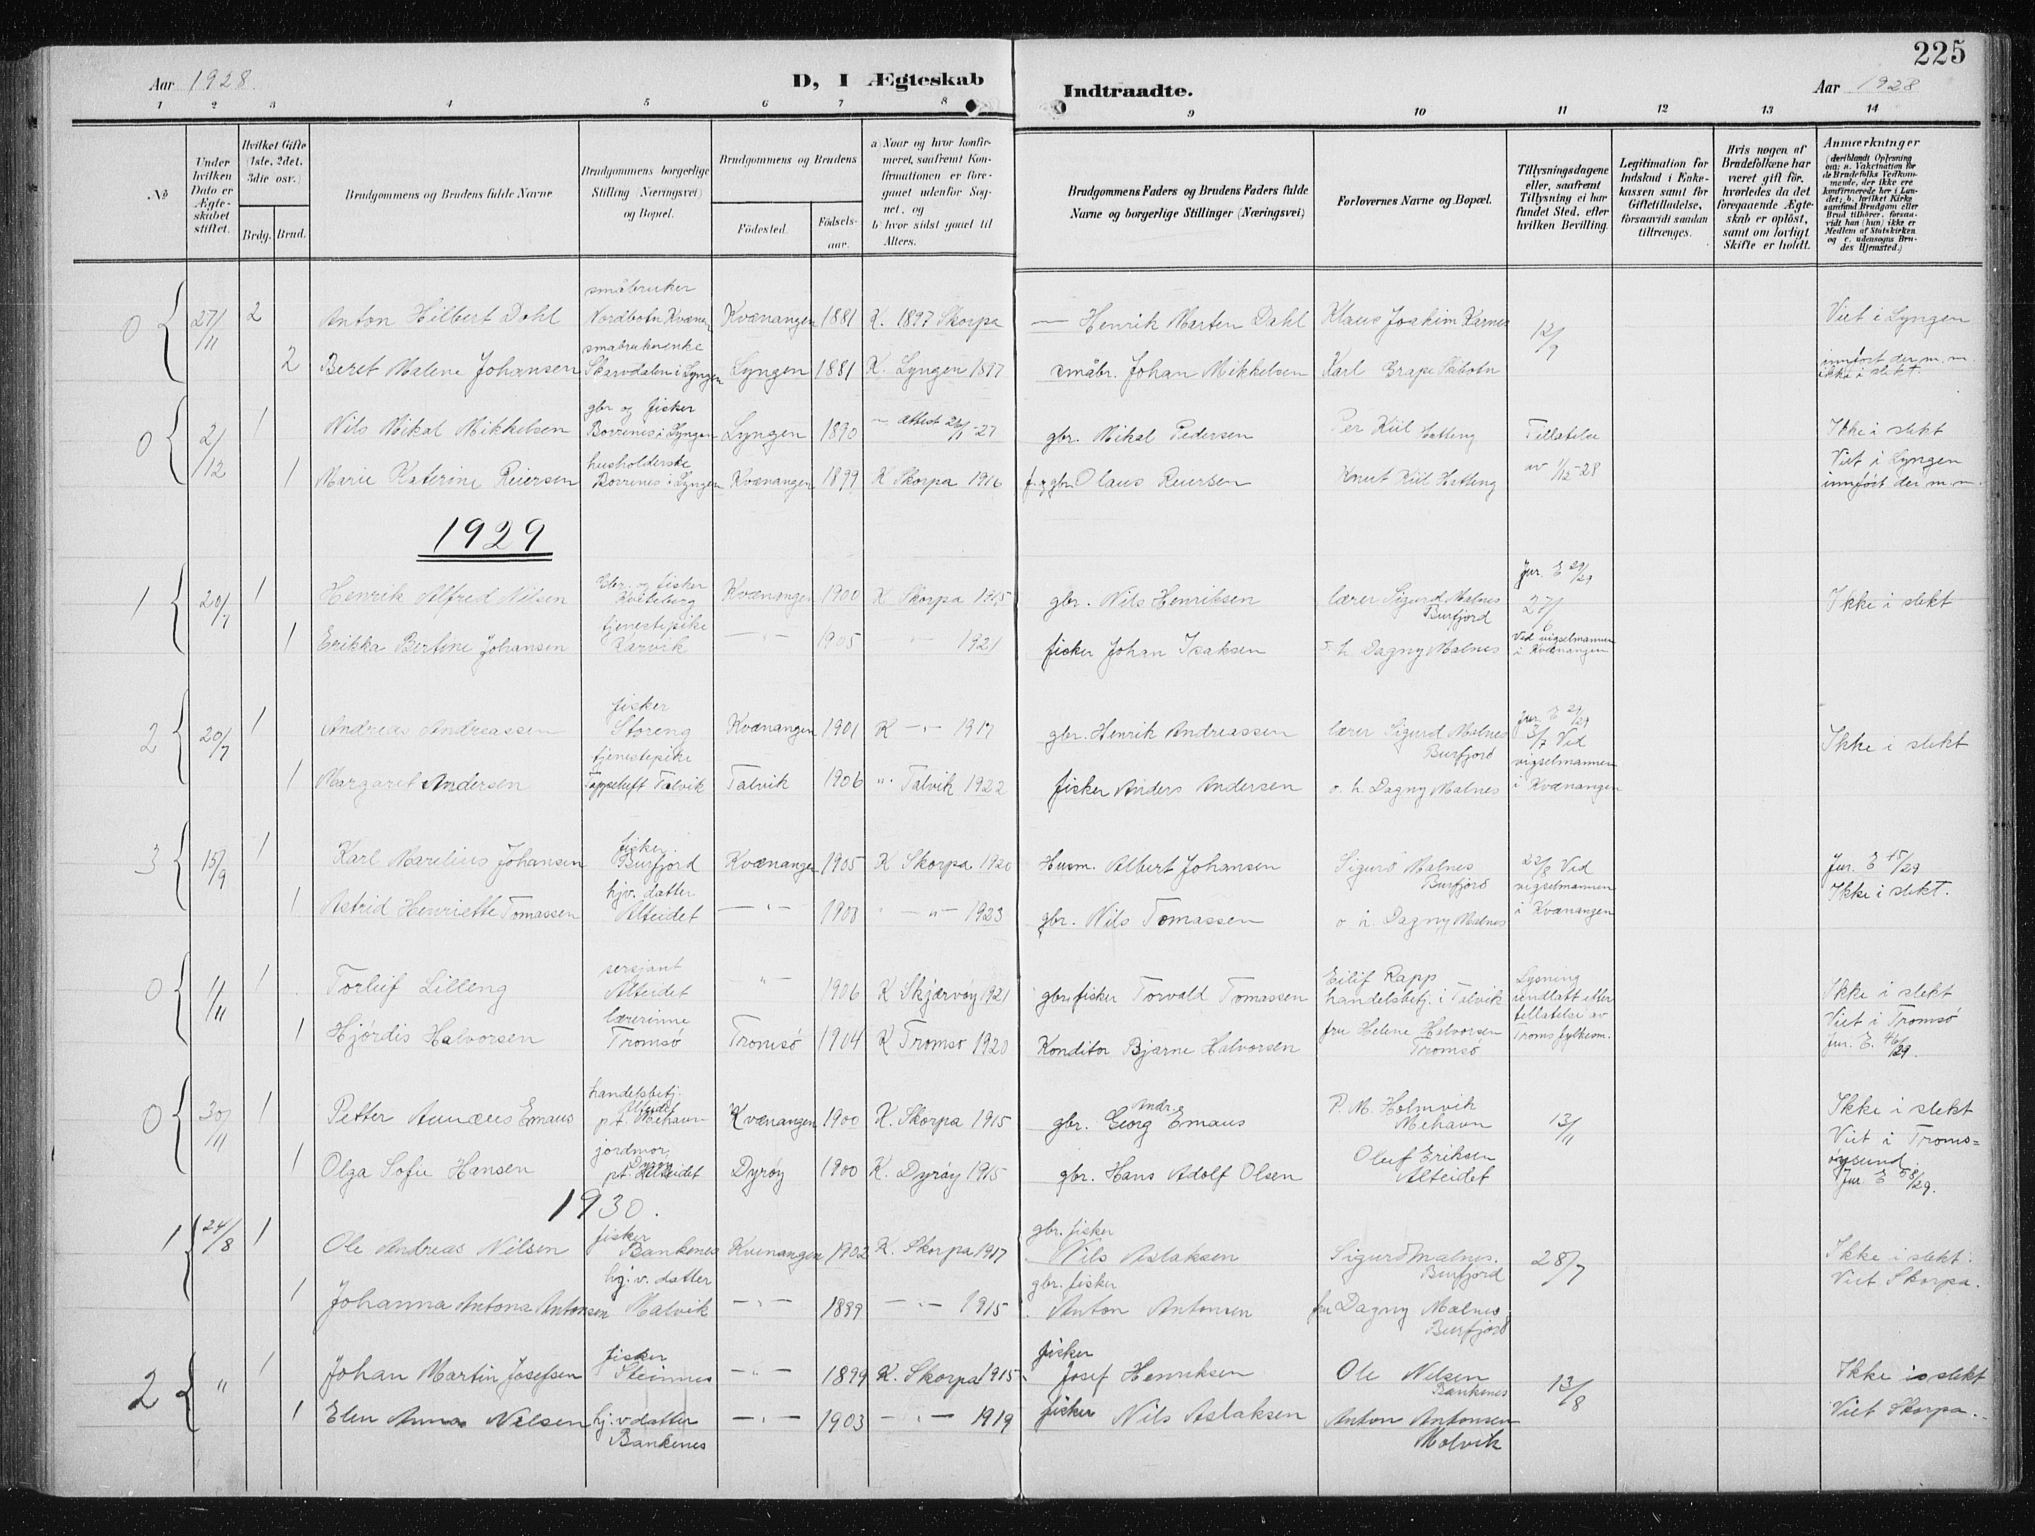 225
Aar 1928. D, I Ægteskab Indtraadte. Aar 1928
1 2 3 4 5 6 7 8 9 10 11 12 13 14
No
Under hvilken Dato er Ægteskabet stiftet.
Hvilket Gifte (1ste, 2det, 3die osv.)
Brdg. Brud.
Brudgommens og Brudens fulde Navne
Brudgommens borgerlige Stilling (Næringsvei) og Bopæl.
Brudgommens og Brudens
Födested. Födsels-aar.
a) Naar og hvor konfirmeret, saafremt Konfirmationen er foregaaet udenfor Sognet, og
b) hvor sidst gaaet til Alters.
Brudgommens Faders og Brudens Faders fulde Navne og borgerlige Stillinger (Næringsvei)
Forlovernes Navne og Bopæl.
Tillysningsdagene eller, saafremt Tillysning ei har fundet Sted, efter hvilken Bevilling.
Legitimation for Indskud i Enkekassen samt for Giftetilladelse, forsaavidt saadan tiltrænges.
Hvis nogen af Brudefolkene har været gift før, hvorledes da det foregaaende Ægteskab er opløst, samt om lovligt Skifte er holdt.
Anmerkninger
(deriblandt Oplysning om: a. Vakcination for de Brudefolks Vedkommende, der ikke ere konfirmerede her i Landet; b. hvilket Kirkesamfund Brudgom eller Brud tilhører, forsaavidt han (hun) ikke er Medlem af Statskirken og c. udensogns Brudes Hjemsted.)
0 27/11 2 Anton Hilbert Dahl småbruker Nordbotn Kvænan Kvænangen 1881 K. 1897 Skorpa — Henrik Marten Dahl Klaus Joakim Karnes 12/9 Viet i Lyngen
2 Beret Malene Johansen småbrukerenke Skarvdalen i Lyngen Lyngen 1881 K. Lyngen 1897 småbr. Johan Mikkelsen Karl Brape Skibotn innført der m.m. ikke i slekt.
0 2/12 1 Nils Mikal Mikkelsen gbr og fisker Bovrenes i Lyngen Lyngen 1890 — Attest 26/1-27 gbr. Mikal Pedersen Per Kiil Hatteng Tillatelse Ikke i slekt
1 Marie Katerine Reiersen husholderske Bovrenes i Lyngen Kvænangen 1899 K Skorpa 1916 f. og gbr. Olaus Reiersen Knut Kiil Hatteng av 1/12-28 Viet i Lyngen innført der m.m.
1929
1 20/7 1 Henrik Alfred Nilsen Gbr. og fisker Kviteberg Kvænangen 1900 K Skorpa 1915 gbr. Nils Henriksen lærer Sigurd Malnes Burfjord Jur. E 29/29 27/6 Ikke i slekt
1 Erikka Bertine Johansen tjenestepike Karvik —"— 1905 —"— 1921 fisker Johan Isaksen o. h. Dagny Malnes Ved vigselmannen i Kvænangen
2 20/7 1 Andreas Andreassen fisker Storeng Kvænangen 1901 K —"— 1917 gbr. Henrik Andreassen lærer Sigurd Malnes Burfjord Jur. E 29/29 3/7 Vid vigselmannen Ikke i slekt
1 Margaret Andersen tjenestepike Tappeluft Talvik Talvik 1906 " Talvik 1922 fisker Anders Andersen o. h. Dagny Malnes i Kvænangen
3 15/9 1 Karl Marelius Johansen fisker. Burfjord Kvænangen 1905 K Skorpa 1920 Husm. Albert Johansen Sigurd Malnes Burfjord 22/8 Ved vigselmannen Jur. E 45/29
1 Astrid Henriette Tomassen hjv. datter Alteidet —"— 1908 " —"— 1923 gbr. Nils Tomassen o. h. Dagny Malnes i Kvænangen Ikke i slekt.
0 1/11 1 Torleif Lilleng sersjant Alteidet —"— 1906 K Skjærvøy 1921 gbr. fisker Torvald Tomassen Eilif Rapp handelsbetj. i Talvik Lysning undlatt etter Ikke i slekt
1 Hjørdis Halvorsen lærerinne Tromsø Tromsø 1904 K Tromsø 1920 Konditor Bjarne Halvorsen fru Helene Halvorsen Tromsø tillatelse av Troms fylkesm. Viet i Tromsø Jur. E. 46/29.
0 30/11 1 Petter Annæus Emaus handelsbetj. Alteidet p.t. Mehavn Kvænangen 1900 K. Skorpa 1915 gbr. Georg Andr. Emaus P. M. Holmvik Mehavn 13/11 Ikke i slekt
1 Olga Sofie Hansen jordmor, Dyrøy pt. Alteidet Dyrøy 1900 K. Dyrøy 1915 gbr. Hans Adolf Olsen Oluf Eriksen Alteidet Viet i Tromsøysund Jur. E 58/29.
1930.
1 24/8 1 Ole Andreas Nilsen fisker Bankenes Kvenangen 1902 K. Skorpa 1917 gbr. fisker Nils Aslaksen Sigurd Malnes. Burfjord 28/7 Ikke i slekt.
1 Johanna Antona Antonsen hj. v. datter Malvik —"— 1899 —"— 1915 gbr. fisker Anton Antonsen fru Dagny Malnes Burfjord Viet Skorpa.
2 " 1 Johan Martin Josefsen fisker Steinnes —"— 1899 K. Skorpa 1915 fisker Josef Henriksen Ole Nilsen Bankenes 13/8 Ikke i slekt
1 Elen Anna Nilsen hj. v datter Bankenes —"— 1903 —"— 1919 fisker Nils Aslaksen Anton Antonsen Molvik Viet Skorpa.